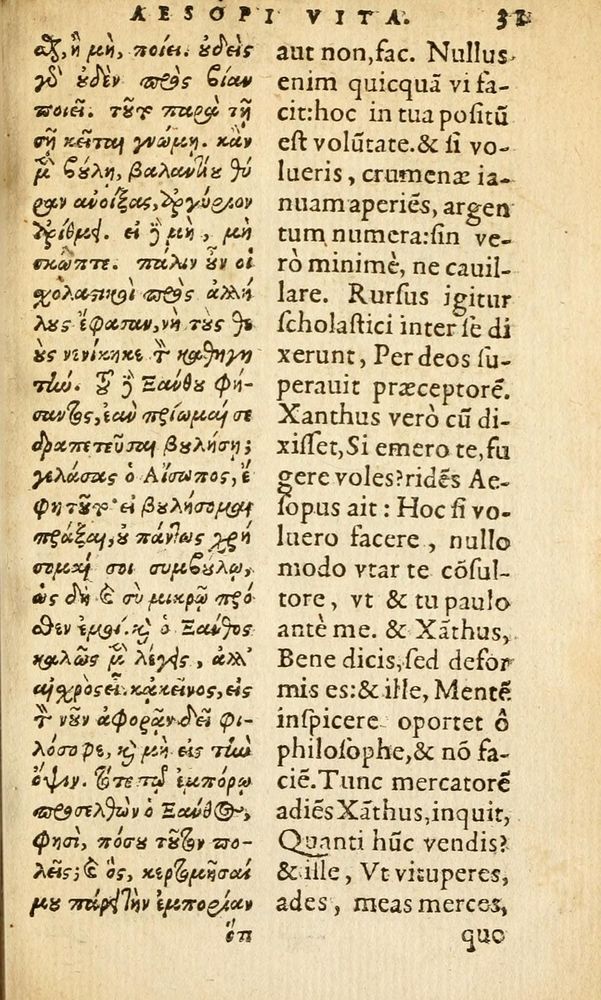 AESOPI VITA. 31
ἢ μὴ, ποίει. οὐδεὶς
γδ οὐδὲν πρὸς βίαν
ποιεῖ. τοῦτο παρὰ τῇ
σῇ κεῖται γνώμῃ. κἂν
μὲν βούλῃ, βαλαντίου θύ
ραν ἀνοίξας, ἀργύριον
ἀρίθμει. εἰ δὲ μὴ, μὴ
σκῶπτε. πάλιν οὖν οἱ
σχολαστικοὶ πρὸς ἀλλή
λους ἔφασαν, νὴ τοὺς θε
οὺς νενίκηκε τὸν καθηγη
τήν. τοῦ δὲ Ξάνθου φή-
σαντος, ἐὰν πρίωμαί σε
δραπετεῦσαι βουλήσῃ;
γελάσας ὁ Αἴσωπος, ἔ
φη τοῦτο εἰ βουλήσομαι
πρᾶξαι, οὐ πάντως χρή
σομαί σοι συμβούλῳ,
ὡς δὴ καὶ σὺ μικρῷ πρό
σθεν ἐμοί. καὶ ὁ Ξάνθος
καλῶς μὲν λέγεις, ἀλλ'
αἰχρὸς εἶ. κἀκεῖνος, εἰς
τὸν νοῦν ἀφορᾶν δεῖ φι-
λόσοφε, καὶ μὴ εἰς τὴν
ὄψιν. τότε τῷ ἐμπόρῳ
προσελθὼν ὁ Ξάνθος,
φησὶ, πόσου τοῦτον πω-
λεῖς; καὶ ὃς, κερτομῆσαί
μου πάρει τὴν ἐμπορίαν
ὅτι
aut non, fac. Nullus
enim quicquã vi fa-
cit: hoc in tua poſitũ
eſt volũtate. & ſi vo-
lueris, crumenæ ia-
nuam aperiẽs, argen
tum numera: ſin ve-
rò minimè, ne cauil-
lare. Rurſus igitur
ſcholaſtici inter ſe di
xerunt, Per deos ſu-
perauit præceptorẽ.
Xanthus verò cũ di-
xiſſet, Si emero te, fu
gere voles? ridẽs Ae-
ſopus ait: Hoc ſi vo-
luero facere, nullo
modo vtar te cõſul-
tore, vt & tu paulo
antè me. & Xãthus,
Bene dicis, ſed defor
mis es: & ille, Mentẽ
inſpicere oportet ô
philoſophe, & nõ fa-
ciẽ. Tunc mercatorẽ
adiẽs Xãthus, inquit,
Quanti hũc vendis?
& ille, Vt vituperes,
ades, meas merces,
quo